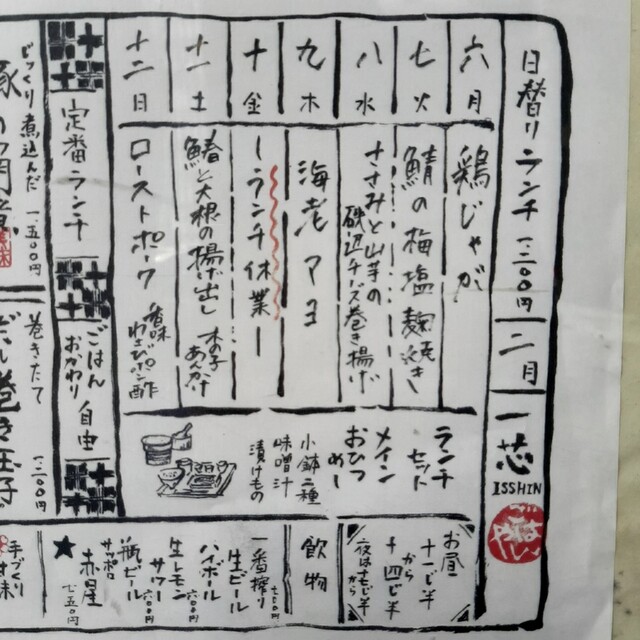 日替りランチ 一二〇〇円
二月
一芯
ISSHIN
六 月
鶏じゃが
七 火
鯖の梅塩麹焼き
八 水
ささみと山芋の
磯辺チーズ巻き揚げ
九 木
海老マヨ
十 金
ーランチ休業ー
十一 土
鰆と大根の揚げ出し
木の子
あんかけ
十二 日
ローストポーク
香味
わさびポン酢
ランチ
セット
メイン
おひつ
めし
小鉢二種
味噌汁
漬けもの
お昼
十一じ半
から
十四じ半
夜は十七じ半
から
飲物
一番搾り
生ビール
七五〇円
ハイボール
六〇〇円
生レモン
サワー
六〇〇円
瓶ビール
サッポロ
赤星
七五〇円
定番ランチ
ごはん
おかわり
自由
じっくり煮込んだ
一五〇〇円
巻きたて
だし巻き玉子
一二〇〇円
手づくり